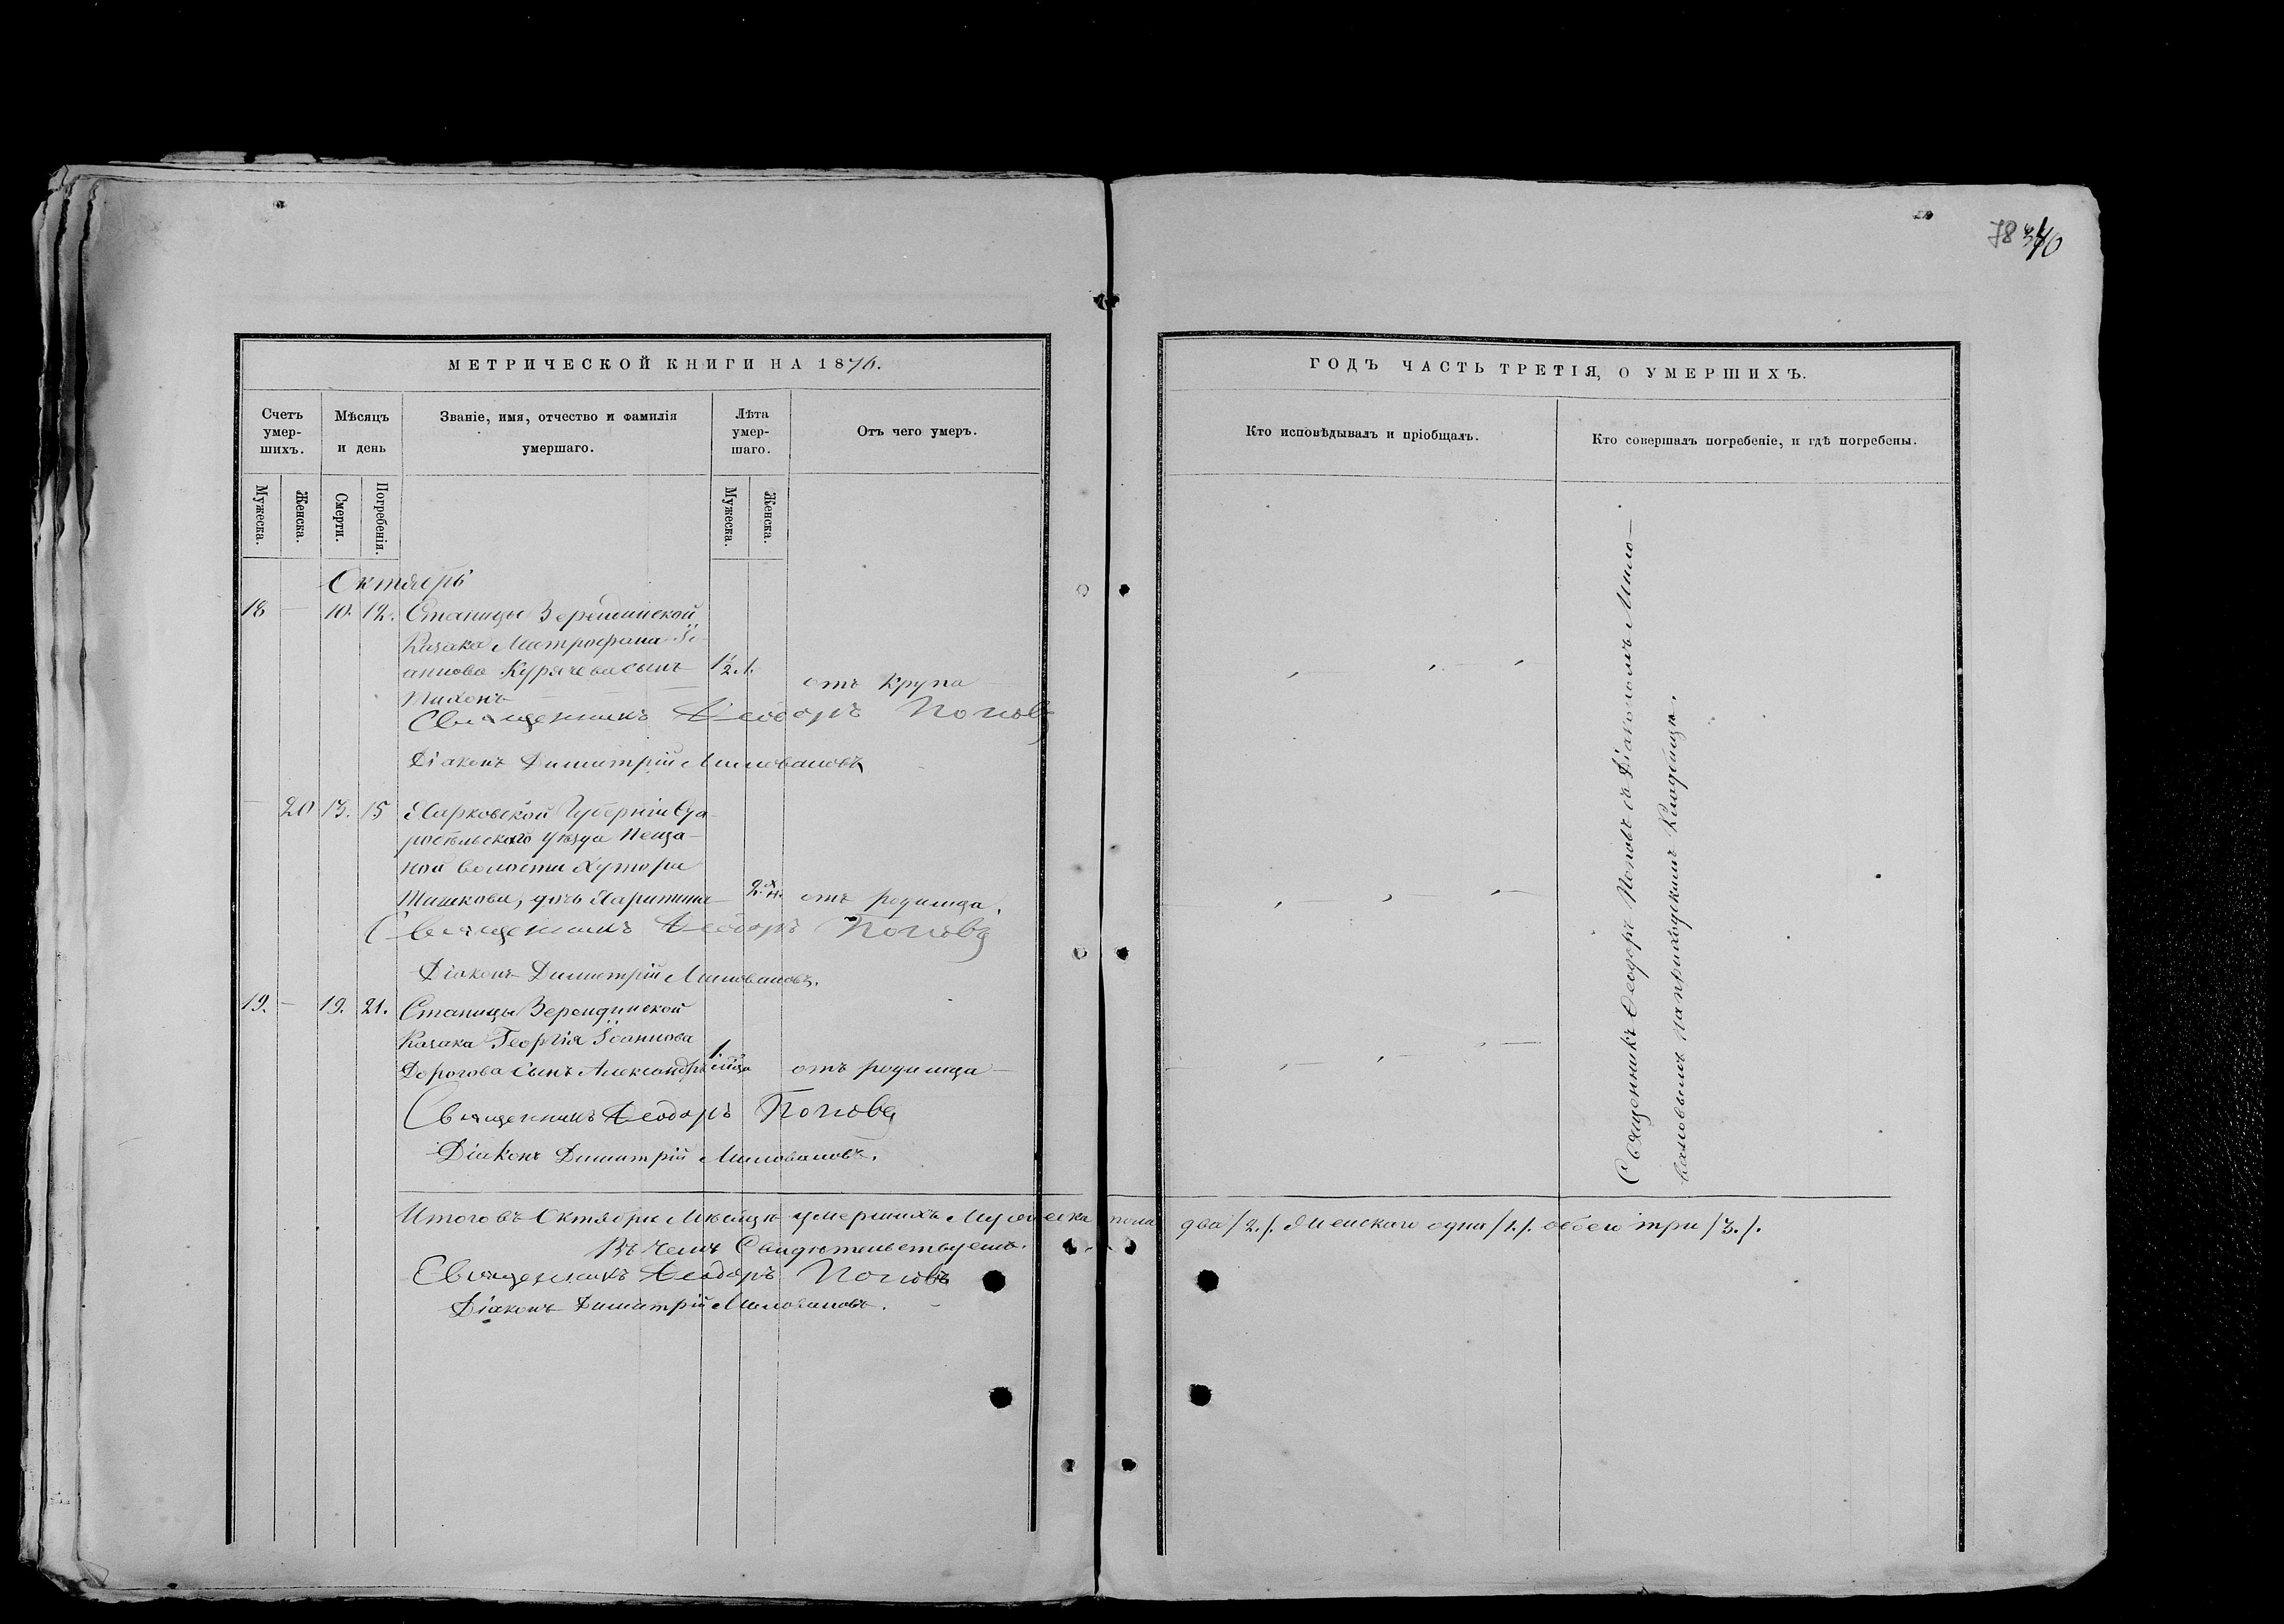 78 340
МЕТРИЧЕСКОЙ КНИГИ НА 1876.
Счетъ умер-шихъ.
Мѣсяцъ и день
Званіе, имя, отчество и фамилія умершаго.
Лѣта умер-шаго.
Отъ чего умеръ.
Мужеска.
Женска.
Смерти.
Погребенія.
Мужеска.
Женска.
Октябрь
18 — 10. 12. Станицы Зерендинской
Казака Митрофана Іо-
аннова Курячева сынъ 1/2 г.
отъ крупа
Тихонъ
Священникъ Ѳеодоръ Поповъ
Діаконъ Димитрій Миловановъ
— 20 13. 15 Харьковской Губерніи Ста-
робѣльскаго уѣзда Песча-
ной волости Хутора
дочь Харитина 2. н. отъ родимца.
Священникъ Ѳеодоръ Поповъ
Діаконъ Димитрій Миловановъ.
19. — 19. 21. Станицы Зерендинской
Казака Георгія Іоаннова
Дорогова сынъ Александръ 1. мѣсяца отъ родимца
Священникъ Ѳеодоръ Поповъ
Діаконъ Димитрій Миловановъ.
Итого въ Октябрѣ Мѣсяцѣ умершихъ Мужеска пола
Въ чемъ Свидѣтельствуемъ.
Священникъ Ѳеодоръ Поповъ
Діаконъ Димитрій Миловановъ.
ГОДЪ ЧАСТЬ ТРЕТІЯ, О УМЕРШИХЪ.
Кто исповѣдывалъ и пріобщалъ.
Кто совершалъ погребеніе, и гдѣ погребены.
Священникъ Ѳеодоръ Поповъ съ Діакономъ Мило-
вановымъ на приходскимъ Кладбищѣ.
два /2./. Женскаго одна /1./. обоего три /3./.